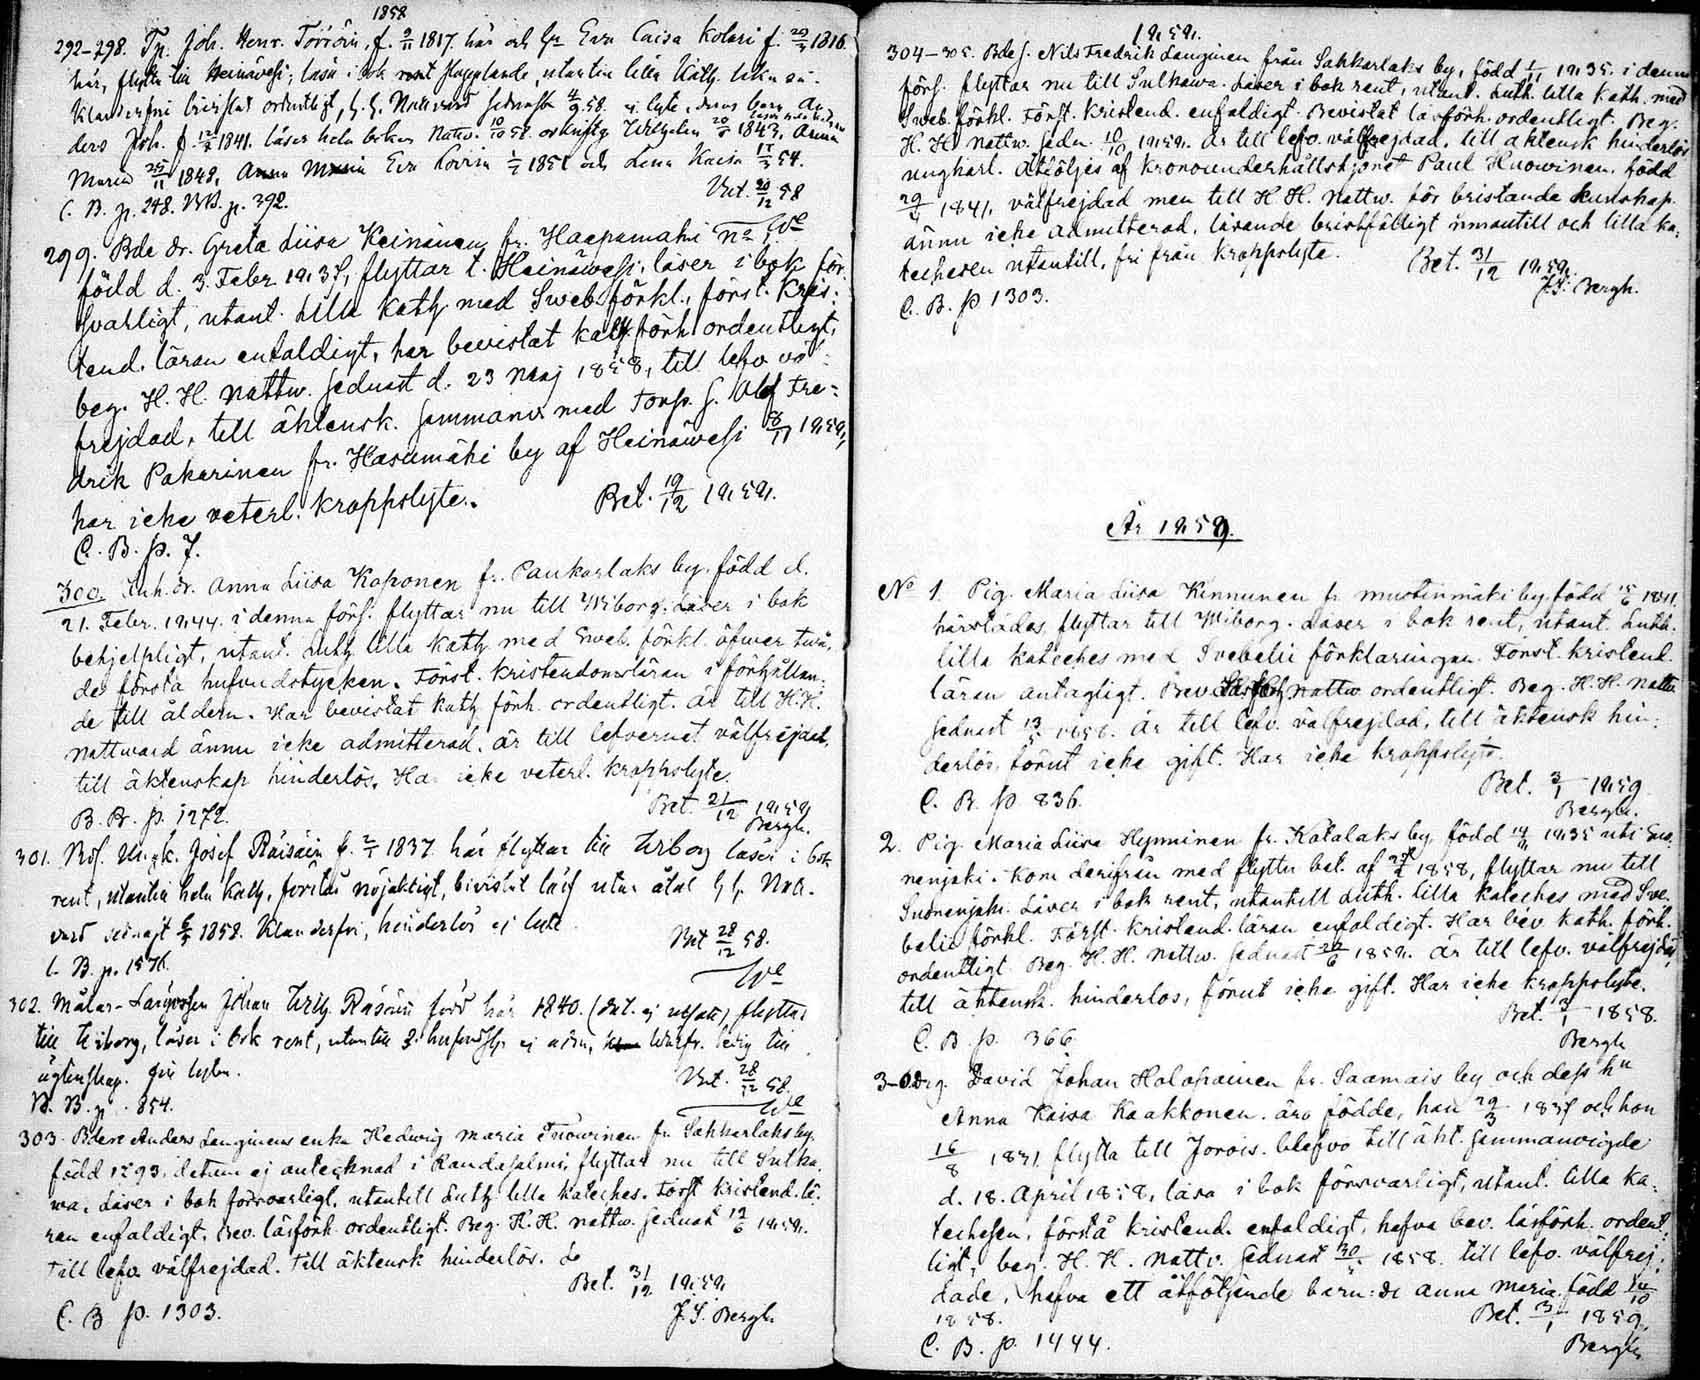 1858
292-298. Tp. Joh. Henr. Törrönen, f. 9/11 1817. här och hu Eva Caisa Kolari f. 29/3 1816
här, flytta till Heinävesi; läsa i bok rent, utantill lilla Kath.
Klanderfri bevistat ordentligt, H. H. Nattvard sednast 4/9 58. ej lyte. deras barn An-
ders Joh. f. 12/2 1841. läser hela boken Nattv. 10/10 58. Wilhelm 20/5 1843, Anna
Maria 25/11 1848, Eva Lovisa 1/2 1851 och Lena Kaisa 17/3 54.
C. B. p. 248. BB. p. 392. Bet. 20/12 58
299. Bde dr. Greta Liisa Keinänen fr. Haapamäki No
född d. 3. Febr 1838, flyttar t. Heinäwesi, läser i bok för-
svarligt, utant. Lilla kath med Sweb. förkl., först. Kris-
tend. läran enfaldigt, har bevistat kath. förh. ordentligt,
beg. H. H. nattw. sednast d. 23 Maj 1858, till lefv. väl-
frejdad, till äktensk. sammanv. med Torp. s. Ulf Fre-
drik Pakarinen fr. Hasumäki by af Heinäwesi 8/11 1858,
har icke veterl. kroppslyte. Bet. 19/12 1858.
C. B. p. 7.
300. Inh. dr. Anna Liisa Kaponen fr. Paukarlaks by. född d.
21. Febr. 1844. i denna förs. flyttar nu till Wiborg. Läser i bok
behjelpligt, utant. Luth lilla kath med Sweb. förkl. öfwer twä-
de första hufwudstycken. Först. Kristendomsläran i förhållan-
de till åldern. Har bevistat kath förh. ordentligt. är till H. H.
nattward ännu icke admitterad. är till lefvernet välfrejdad,
till äktenskap hinderlös. Har icke veterl. kroppslyte.
B. B. p. 1272. Bet. 21/12 1858
Bergh.
301. Josef Räisäin f. 2/1 1837 här flyttar till Wiborg läser i bok
rent, utantill hela kath, förstår nöjaktigt, bevistat läsf utan åtal H. H. Natt-
vard sednast 1858. Klanderfri, hinderlös ej lyte.
C. B. p. 1576. Bet 28/12 58.
302. Målar-Lärgossen Johan Räisäin född här 1840. flyttar
till Wiborg, läser i bok rent, utantill 3. ej adm, ledig till
äktenskap. fri lyten. Bet. 28/12 58
B. B. p. 854.
303. Bden Anders Langinens enka Hedwig Maria fr. Sakkarlaks by.
född 1793. datum ej antecknad i Randasalmi, flyttar nu till Sulka-
wa. Läser i bok försvarligt, utantill Luth lilla Kateches. först kristend. lä-
ran enfaldigt. Bev. läsförh. ordentligt. Beg. H. H. nattw. sednast 19/6 1858.
Till lefv. välfrejdad. till äktensk hinderlös.
Bet. 31/12 1858
C. B p. 1303. J. S. Bergh.
1858.
304-305. Bdes. Nils Fredrik Langinen från Sakkarlaks by, född 1/11 1835. i denna
förs. flyttar nu till Sulkawa. Läser i bok rent, utant. Luth. lilla kath. med
Sweb. förkl. Först. Kristend. enfaldigt. Bevistat läsförh. ordentligt. Beg.
H. H. nattw. sedn. 10/10 1858. är till lefv. välfrejdad, till äktensk hinderlös
ungkarl. Åtföljes af kronounderhållstjonet Paul Huowinen, född
29/4 1841, välfrejdad men till H H. Nattw. för bristande kunskap.
ännu icke admitterad, läsande bristfälligt innantill och lilla ka-
techesen utantill, fri från kroppslyte. Bet. 31/12 1858.
C. B. p 1303. J. S. Bergh.
År 1859.
No 1. Pig. Maria Liisa Kinnunen fr Mustinmäki by född 15/6 1811.
härstädes, flyttar till Wiborg. Läser i bok rent, utant. Luth.
lilla kateches med Svebelii förklaringar. Först. kristend.
läran antagligt. Bev. nattw ordentligt. Beg. H. H. nattv.
sednast är till lefv. välfrejdad, till äktensk hin-
derlös, förut icke gift. Har icke kroppslyte.
C. B. p 836. Bet. 3/1 1859.
Bergh.
2. Pig. Maria Liisa Hynninen fr. Katalaks by, född 1835 uti Suo-
nenjoki. Kom derifrån med flyttn bet. af 1858, flyttar nu till
Suonenjoki. Läser i bok rent, utantill Luth. lilla kateches med Sve-
belii förkl. Först. Kristend. läran enfaldigt. Har bev. kath. förh.
ordentligt. Beg. H. H. nattw. sednast 20/6 1858. är till lefv. välfrejdad,
till äktensk. hinderlös, förut icke gift. Har icke kroppslyte.
C. B. p. 366 Bet. 3/1 1858.
Bergh
David Johan Halopainen fr. Saamais by och dess hu
Anna Kaisa Kaakkonen. äro födde, han 29/3 1837 och hon
16/8 1831 flytta till Jorois. blefvo till äkt. sammanvigde
d. 18. April 1858, läsa i bok försvarligt, utant. lilla ka-
techesen, förstå kristend. enfaldigt, hafva bev. läsförh. ordent-
ligt, beg. H. H. nattv. sednast 1858. till lefv. välfrej-
dade, hafva ett åtföljande barn: dr Anna Maria, född 14/10
1858. Bet. 3/1 1859.
C. B. p. 1444. Bergh